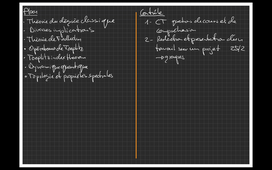 Plan
• Théorie du degré classique
• Diverses implications
• Théorie de Fredholm
• Opérateurs de Toeplitz
• Toeplitz
• Dynamique quantique
• Topologie et propriétés spectrales
Contrôle
1- CT questions de cours et de
compréhension
2- Rédaction et présentation d'un
travail sur un projet 25/2
→ groupes